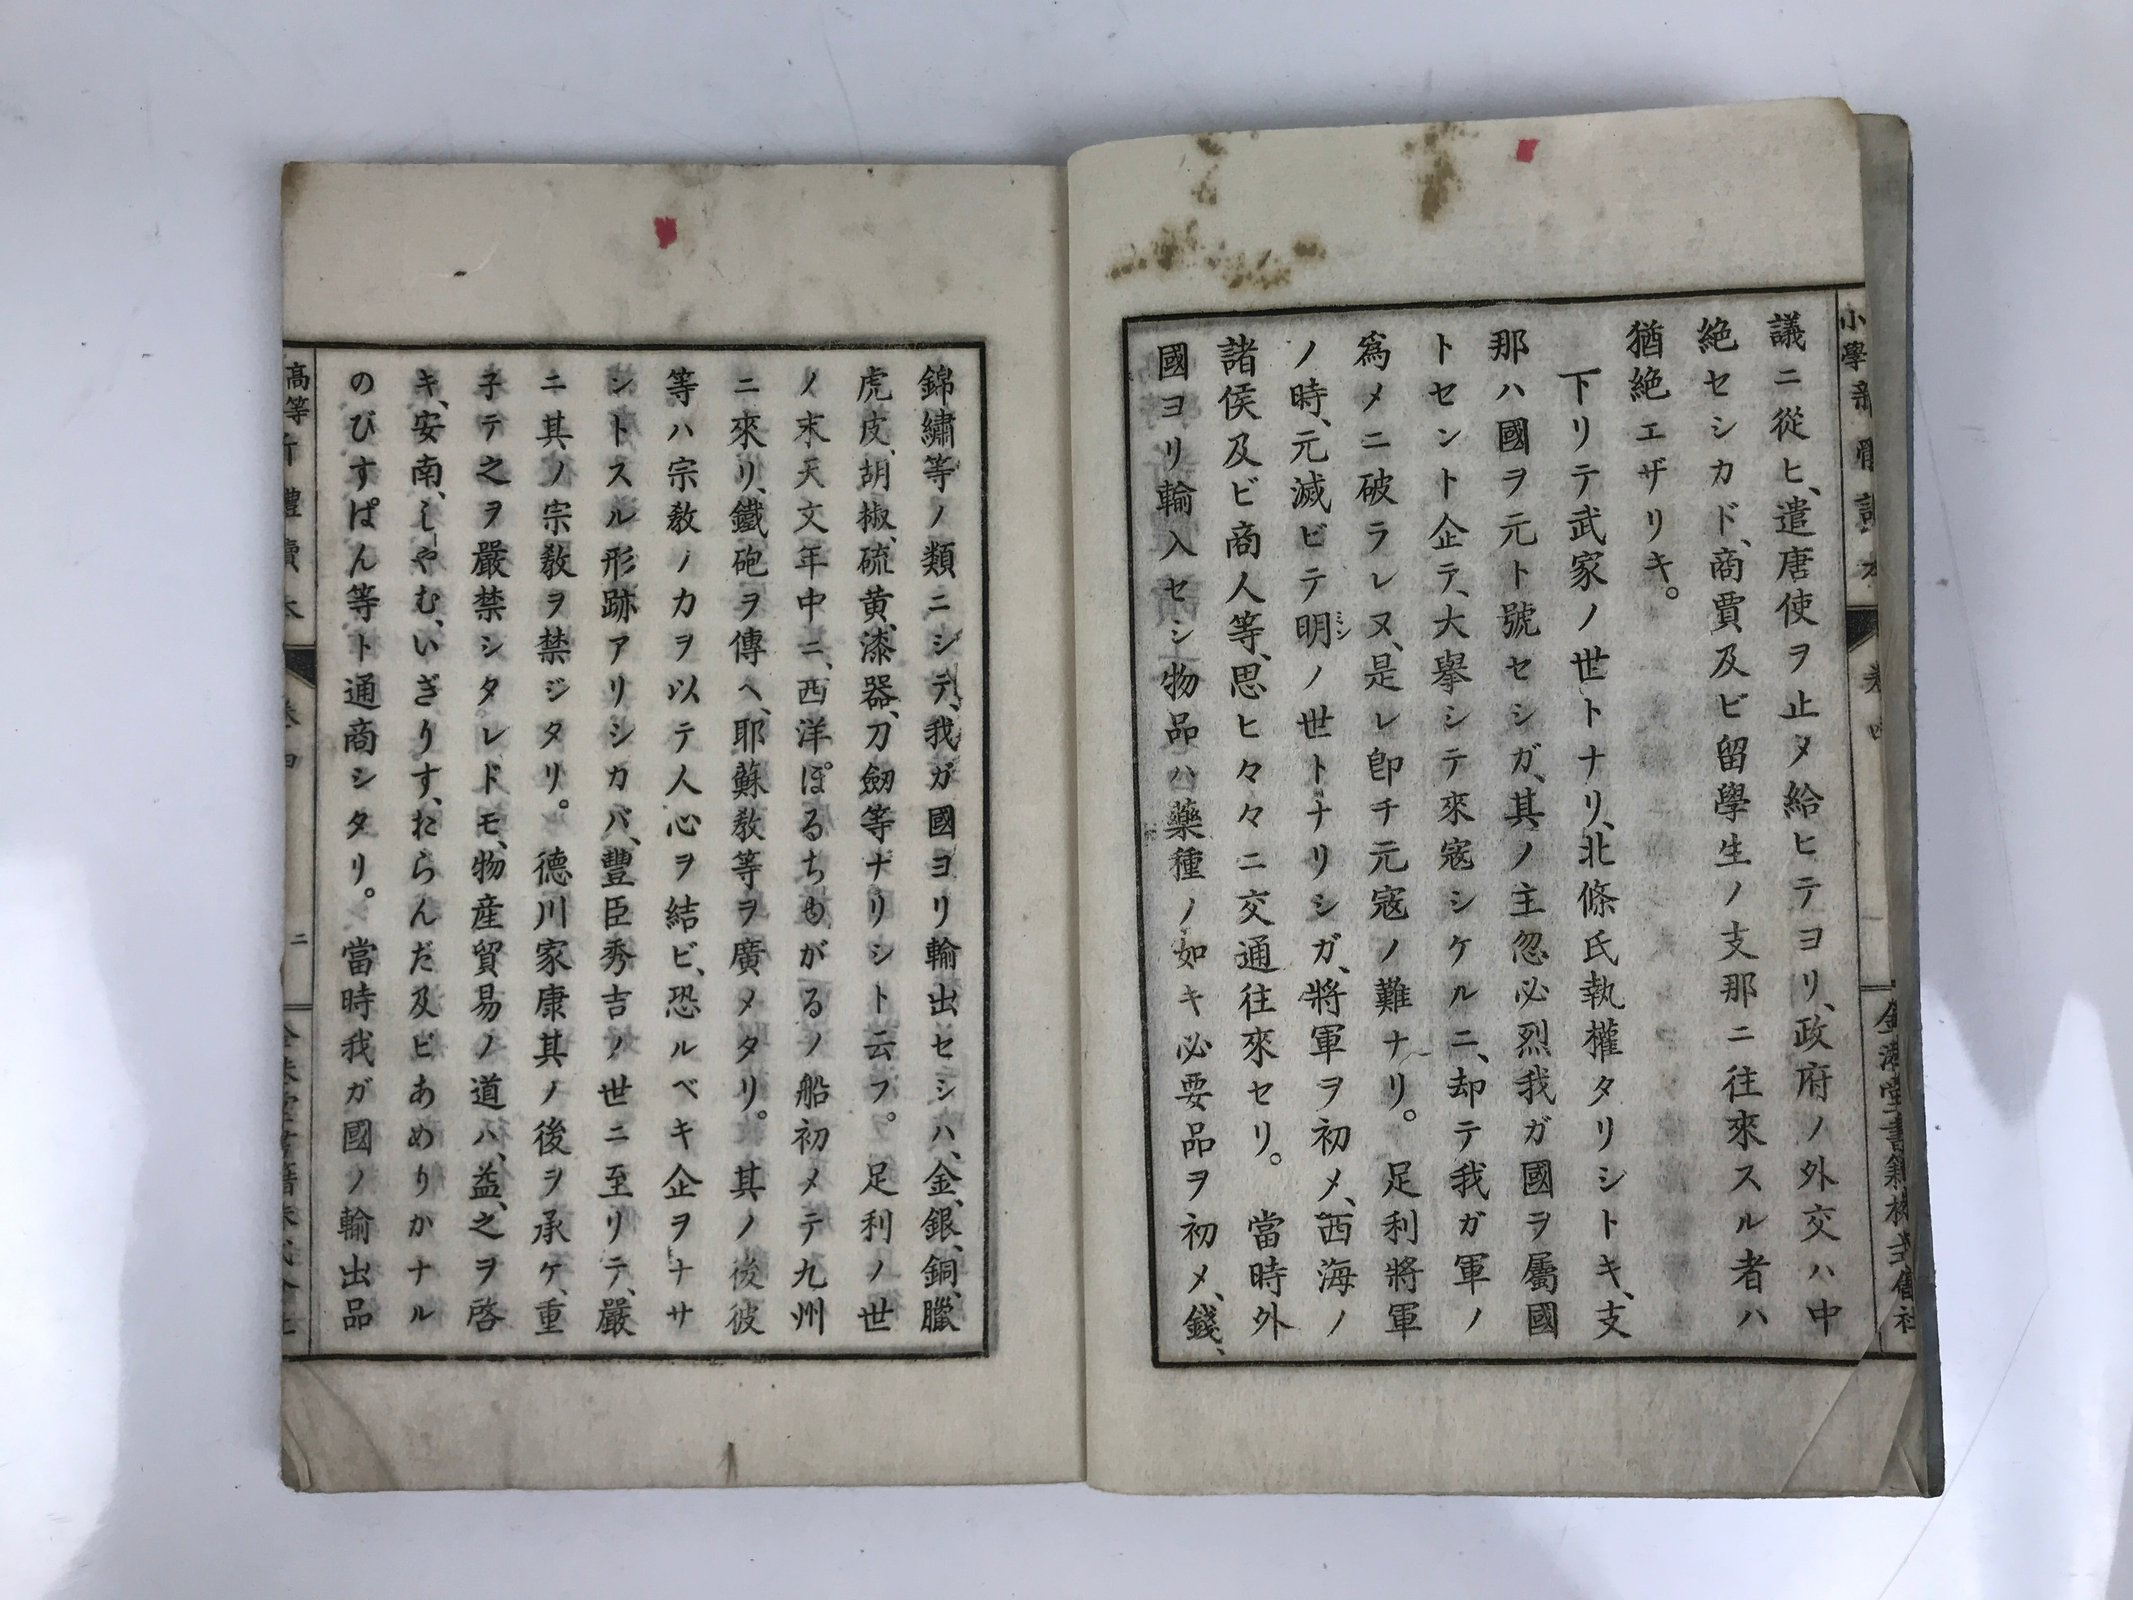 議ニ從ヒ、遣唐使ヲ止メ給ヒテヨリ、政府ノ外交ハ中
絶セシカド、商賈及ビ留學生ノ支那ニ往來スル者ハ
猶絶エザリキ。
下リテ武家ノ世トナリ、北條氏執權タリシトキ、支
那ハ國ヲ元ト號セシガ、其ノ主忽必烈我ガ國ヲ屬國
トセント企テ、大擧シテ來寇シケルニ、却テ我ガ軍ノ
爲メニ破ラレヌ、是レ卽チ元寇ノ難ナリ。足利將軍
ノ時、元滅ビテ明ミンノ世トナリシガ、將軍ヲ初メ、西海ノ
諸侯及ビ商人等、思ヒ々々ニ交通往來セリ。當時外
國ヨリ輸入セシ物品ハ藥種ノ如キ必要品ヲ初メ、錢、
錦繡等ノ類ニシテ、我ガ國ヨリ輸出セシハ、金、銀、銅、臘、
虎皮、胡椒、硫黄、漆器、刀劒等ナリシト云フ。足利ノ世
ノ末天文年中ニ、西洋ぽるちもがるノ船初メテ九州
ニ來リ、鐵砲ヲ傳ヘ、耶蘇敎等ヲ廣メタリ。其ノ後彼
等ハ宗敎ノカヲ以テ人心ヲ結ビ、恐ルベキ企ヲナサ
ントスル形跡アリシカバ、豐臣秀吉ノ世ニ至リテ、嚴
ニ其ノ宗敎ヲ禁ジタリ。德川家康其ノ後ヲ承ケ、重
子テ之ヲ嚴禁シタレドモ、物産貿易ノ道ハ、益、之ヲ啓
キ、安南、しやむ、いぎりす、おらんだ及ビあめりかナル
のびすぱん等ト通商シタリ。當時我ガ國ノ輸出品
高等
讀本
卷四
二